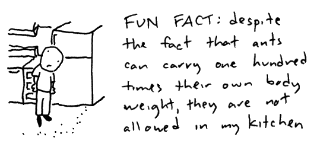 FUN FACT: despite
the fact that ants
can carry one hundred
times their own body
weight, they are not
allowed in my kitchen